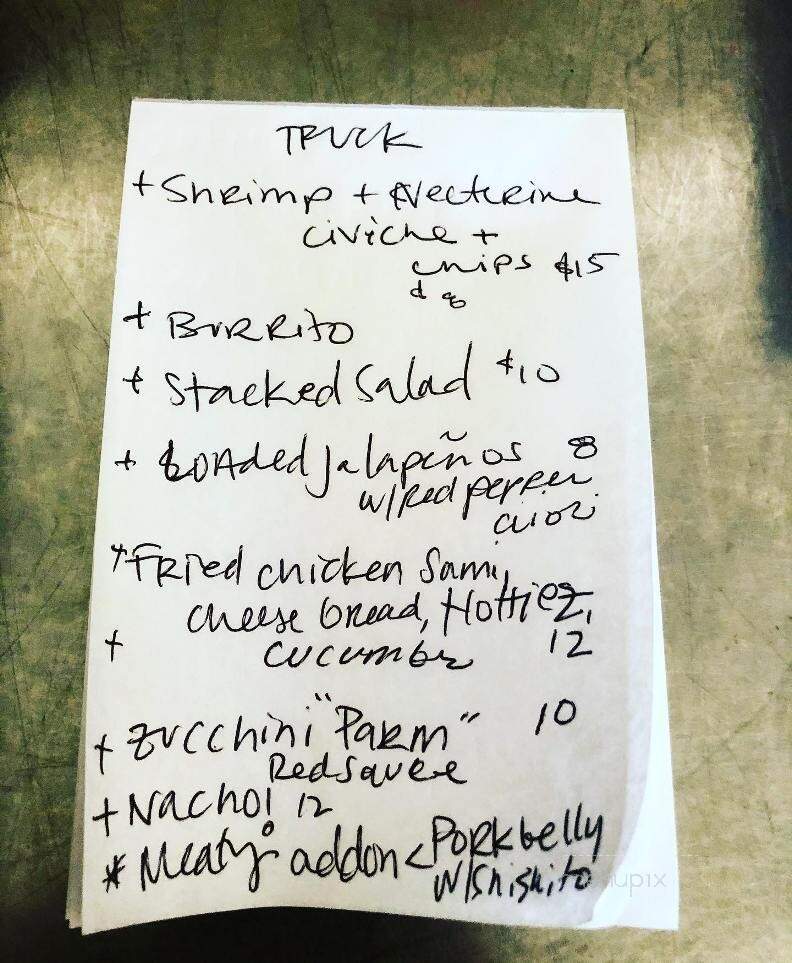 TRUCK
+ Shrimp + Necterine
civiche +
chips $15
+ Burrito
+ Stacked Salad $10
+ Loaded Jalapeños 8
w/Red pepper
aioli
+ Fried chicken Sami,
cheese bread, Hottiez,
+ cucumber 12
+ Zucchini "Parm" 10
Red sauce
+ Nacho! 12
* Meaty addon < Pork belly
w/Shishito